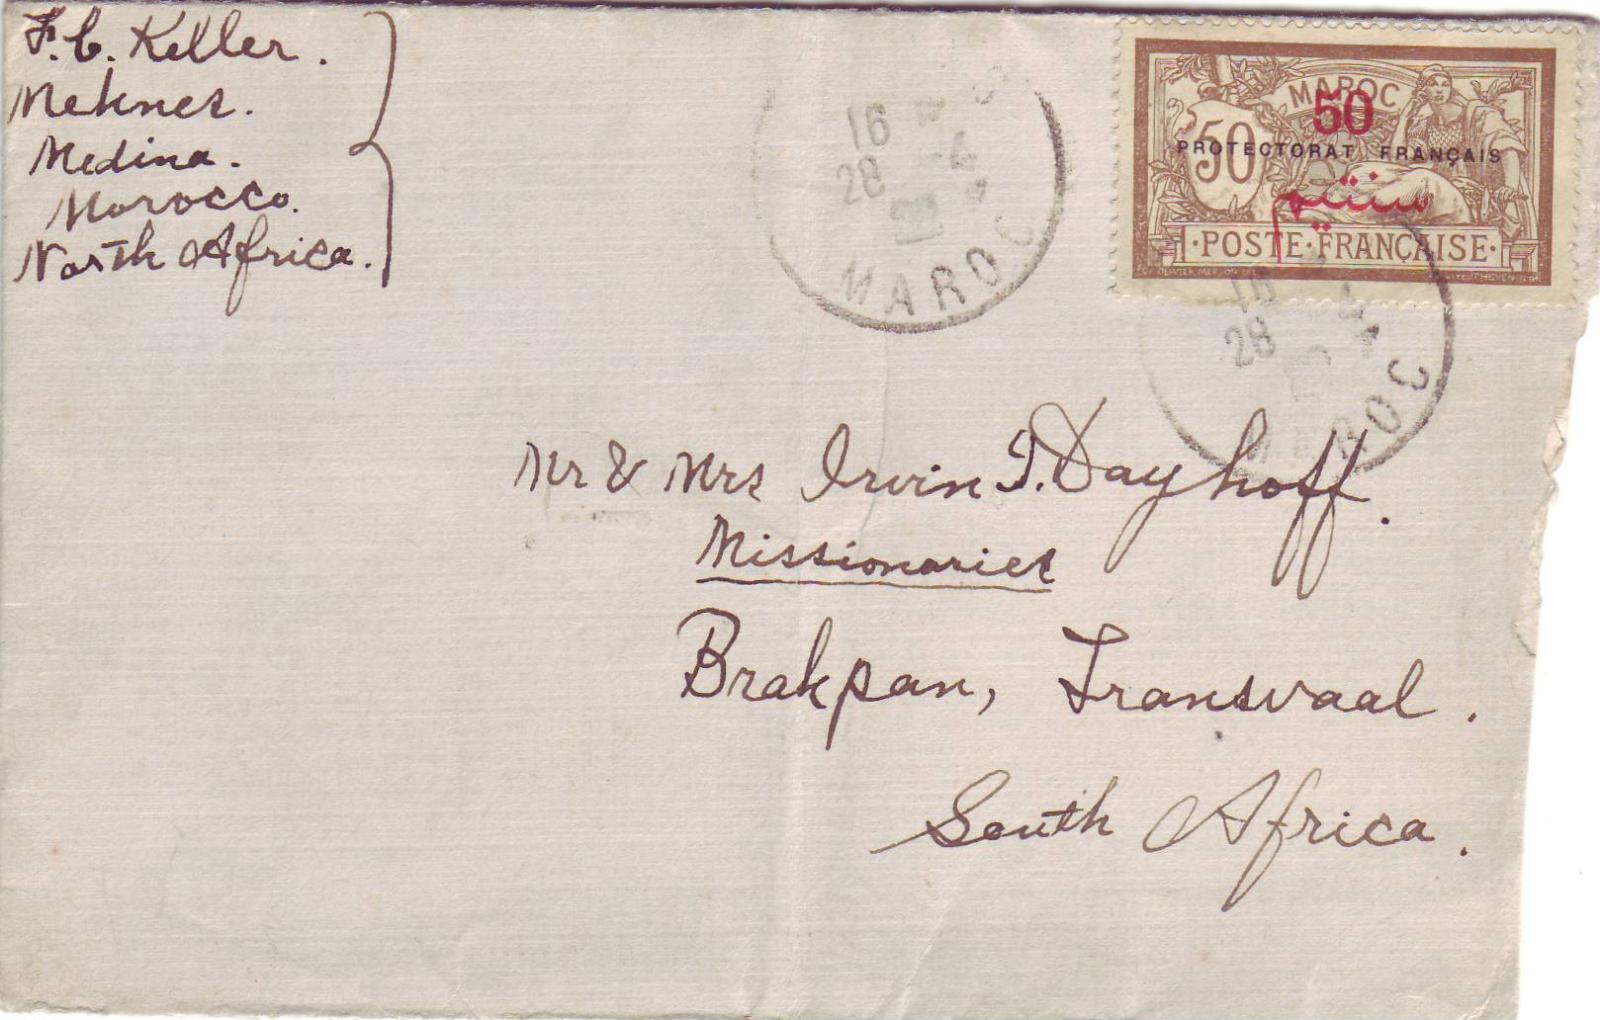 F. C. Keller.
Meknes.
Medina.
Morocco.
North Africa.
16
28 -4
MAROC
MAROC
50
50
PROTECTORAT FRANÇAIS
سنتيم
·POSTE·FRANÇAISE·
28
MAROC
Mr & Mrs Irvin J. Dayhoff.
Missionaries
Brakpan, Transvaal.
South Africa.